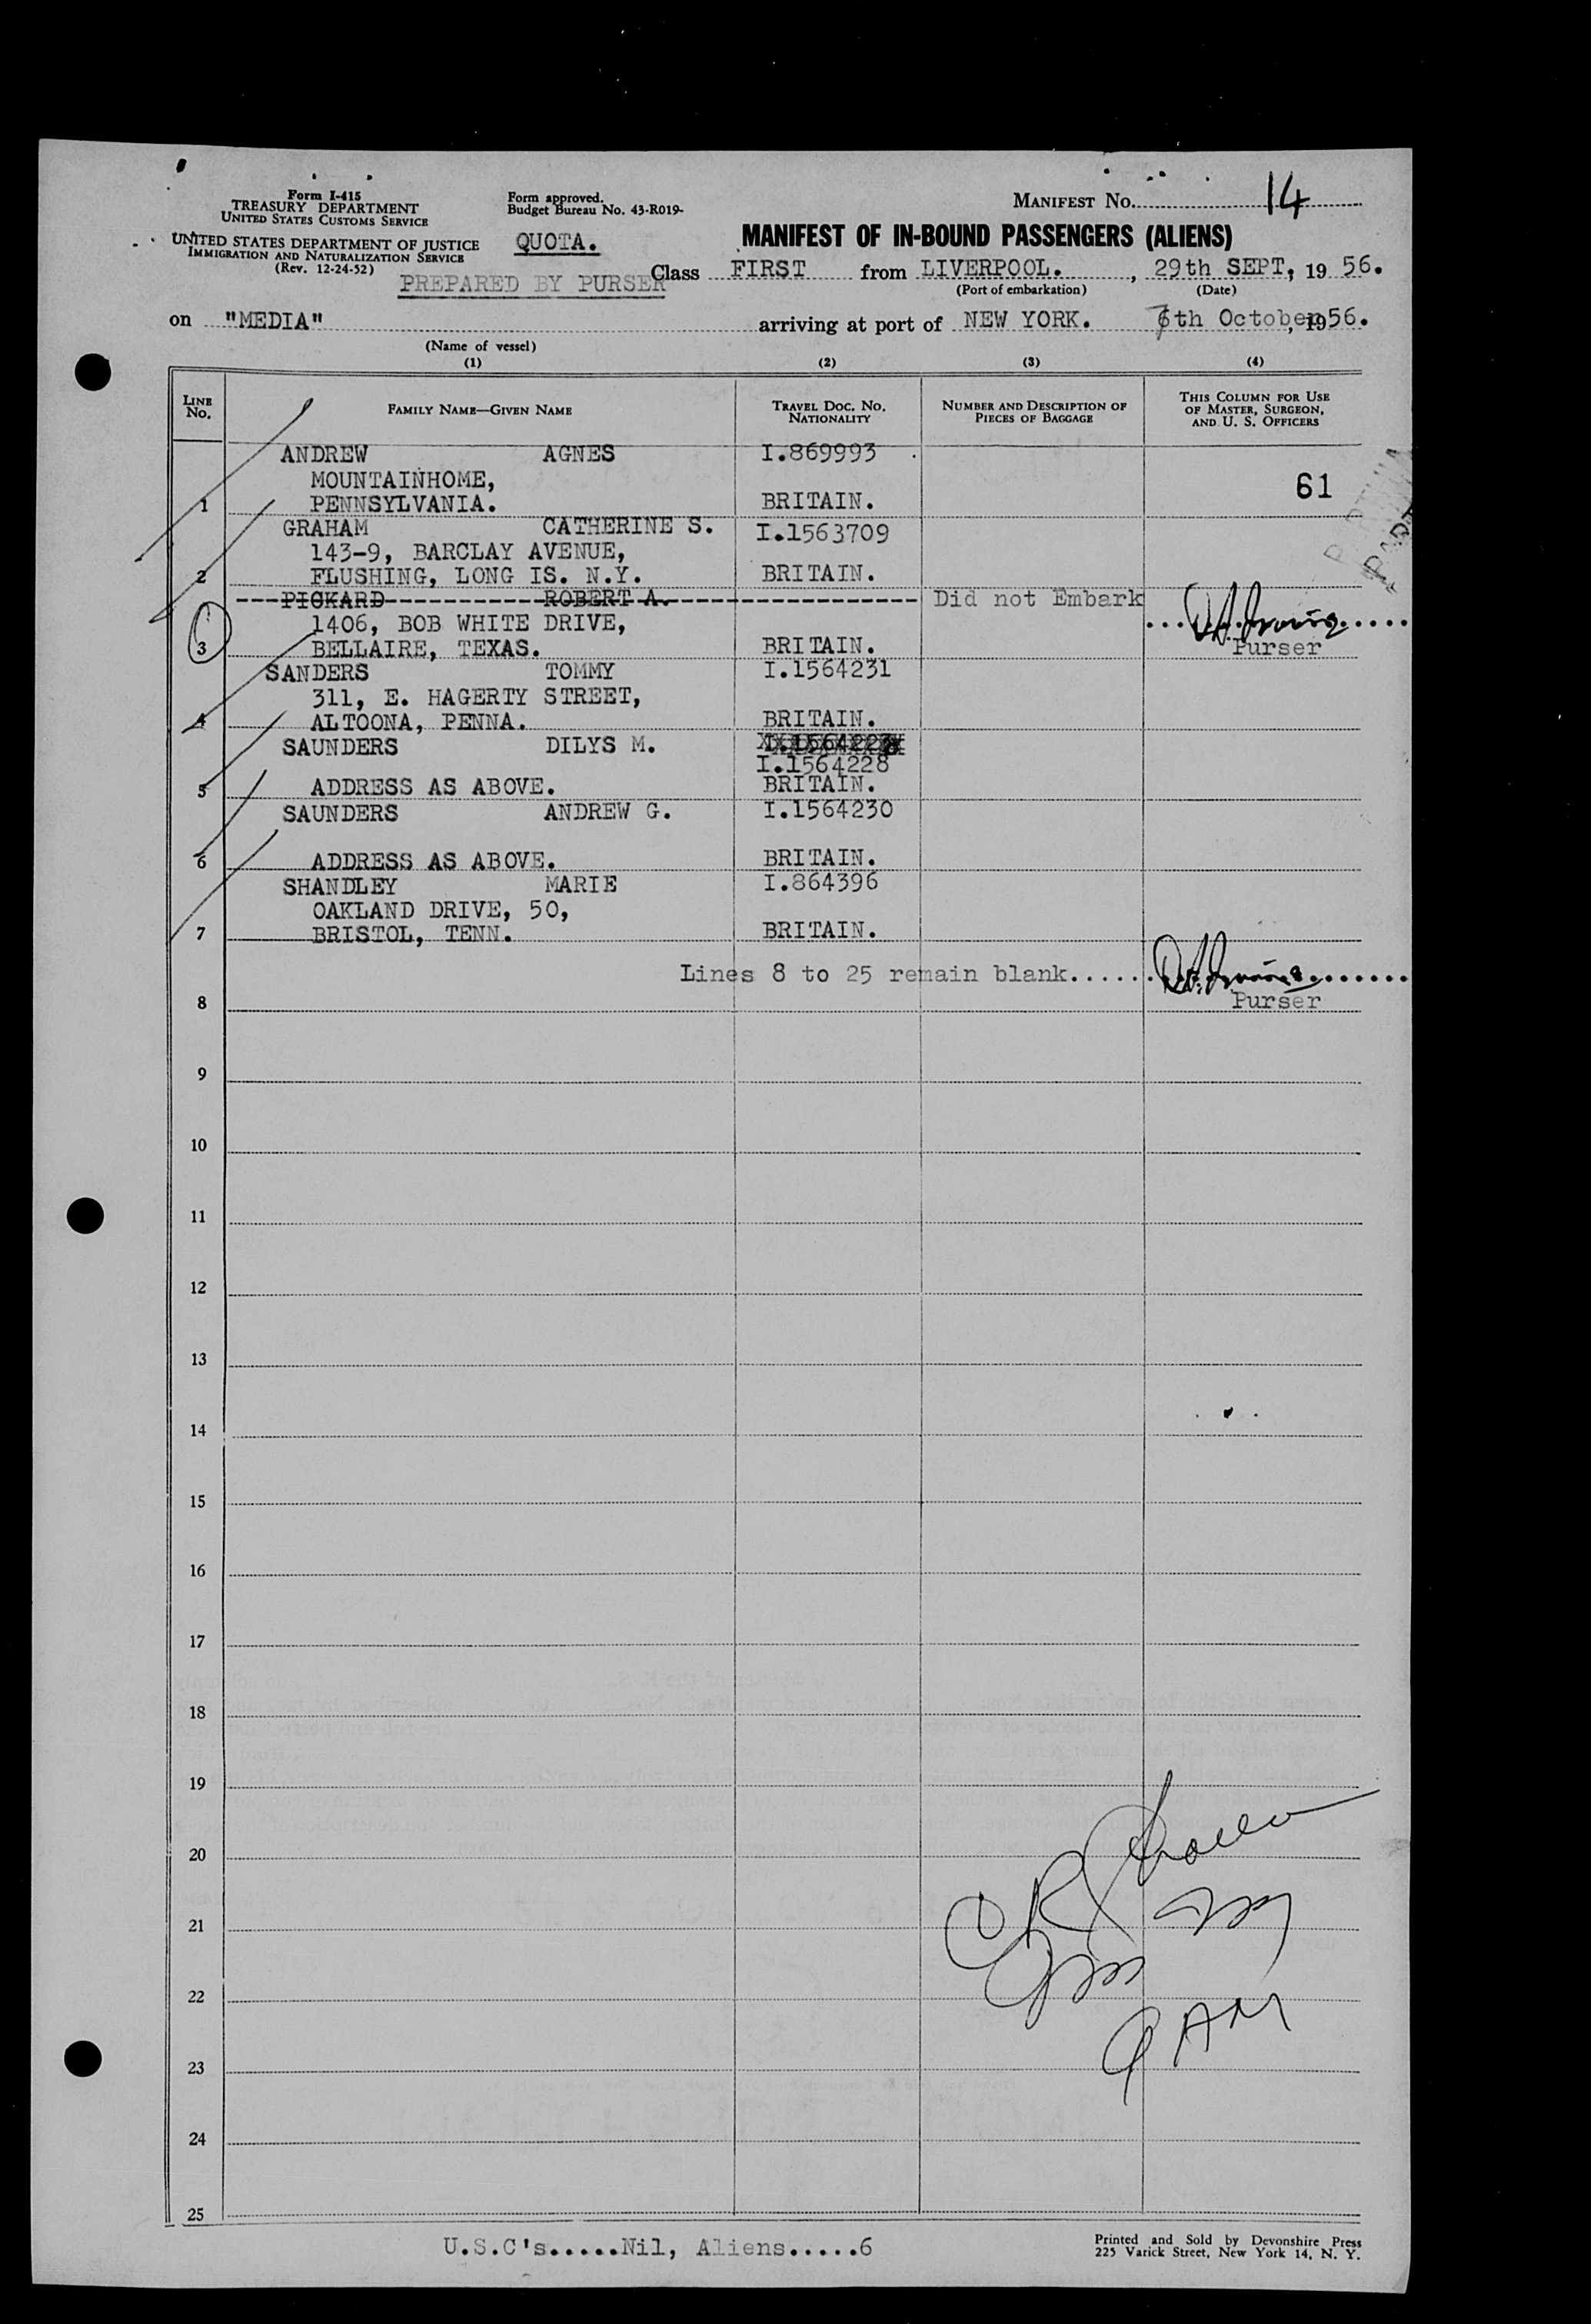 Form I-415
TREASURY DEPARTMENT
UNITED STATES CUSTOMS SERVICE
UNITED STATES DEPARTMENT OF JUSTICE
IMMIGRATION AND NATURALIZATION SERVICE
(Rev. 12-24-52)
Form approved.
Budget Bureau No. 43-R019-
QUOTA.
PREPARED BY PURSER
MANIFEST No. 14
MANIFEST OF IN-BOUND PASSENGERS (ALIENS)
Class FIRST from LIVERPOOL. , 29th SEPT, 19 56.
(Port of embarkation) (Date)
on "MEDIA" arriving at port of NEW YORK. 7th October, 1956.
(Name of vessel)
(1) (2) (3) (4)
LINE No. FAMILY NAME—GIVEN NAME TRAVEL DOC. NO. NATIONALITY NUMBER AND DESCRIPTION OF PIECES OF BAGGAGE THIS COLUMN FOR USE OF MASTER, SURGEON, AND U. S. OFFICERS
ANDREW AGNES I.869993
MOUNTAINHOME, 61
1 PENNSYLVANIA. BRITAIN.
GRAHAM CATHERINE S. I.1563709
143-9, BARCLAY AVENUE,
2 FLUSHING, LONG IS. N.Y. BRITAIN.
PICKARD ROBERT A. Did not Embark
1406, BOB WHITE DRIVE,
3 BELLAIRE, TEXAS. BRITAIN. Purser
SANDERS TOMMY I.1564231
311, E. HAGERTY STREET,
4 ALTOONA, PENNA. BRITAIN.
SAUNDERS DILYS M.
I.1564228
5 ADDRESS AS ABOVE. BRITAIN.
SAUNDERS ANDREW G. I.1564230
6 ADDRESS AS ABOVE. BRITAIN.
SHANDLEY MARIE I.864396
OAKLAND DRIVE, 50,
7 BRISTOL, TENN. BRITAIN.
Lines 8 to 25 remain blank......
8 Purser
9
10
11
12
13
14
15
16
17
18
19
20
21
22
23
24
25
U.S.C's.....Nil, Aliens.....6
Printed and Sold by Devonshire Press
225 Varick Street, New York 14, N. Y.